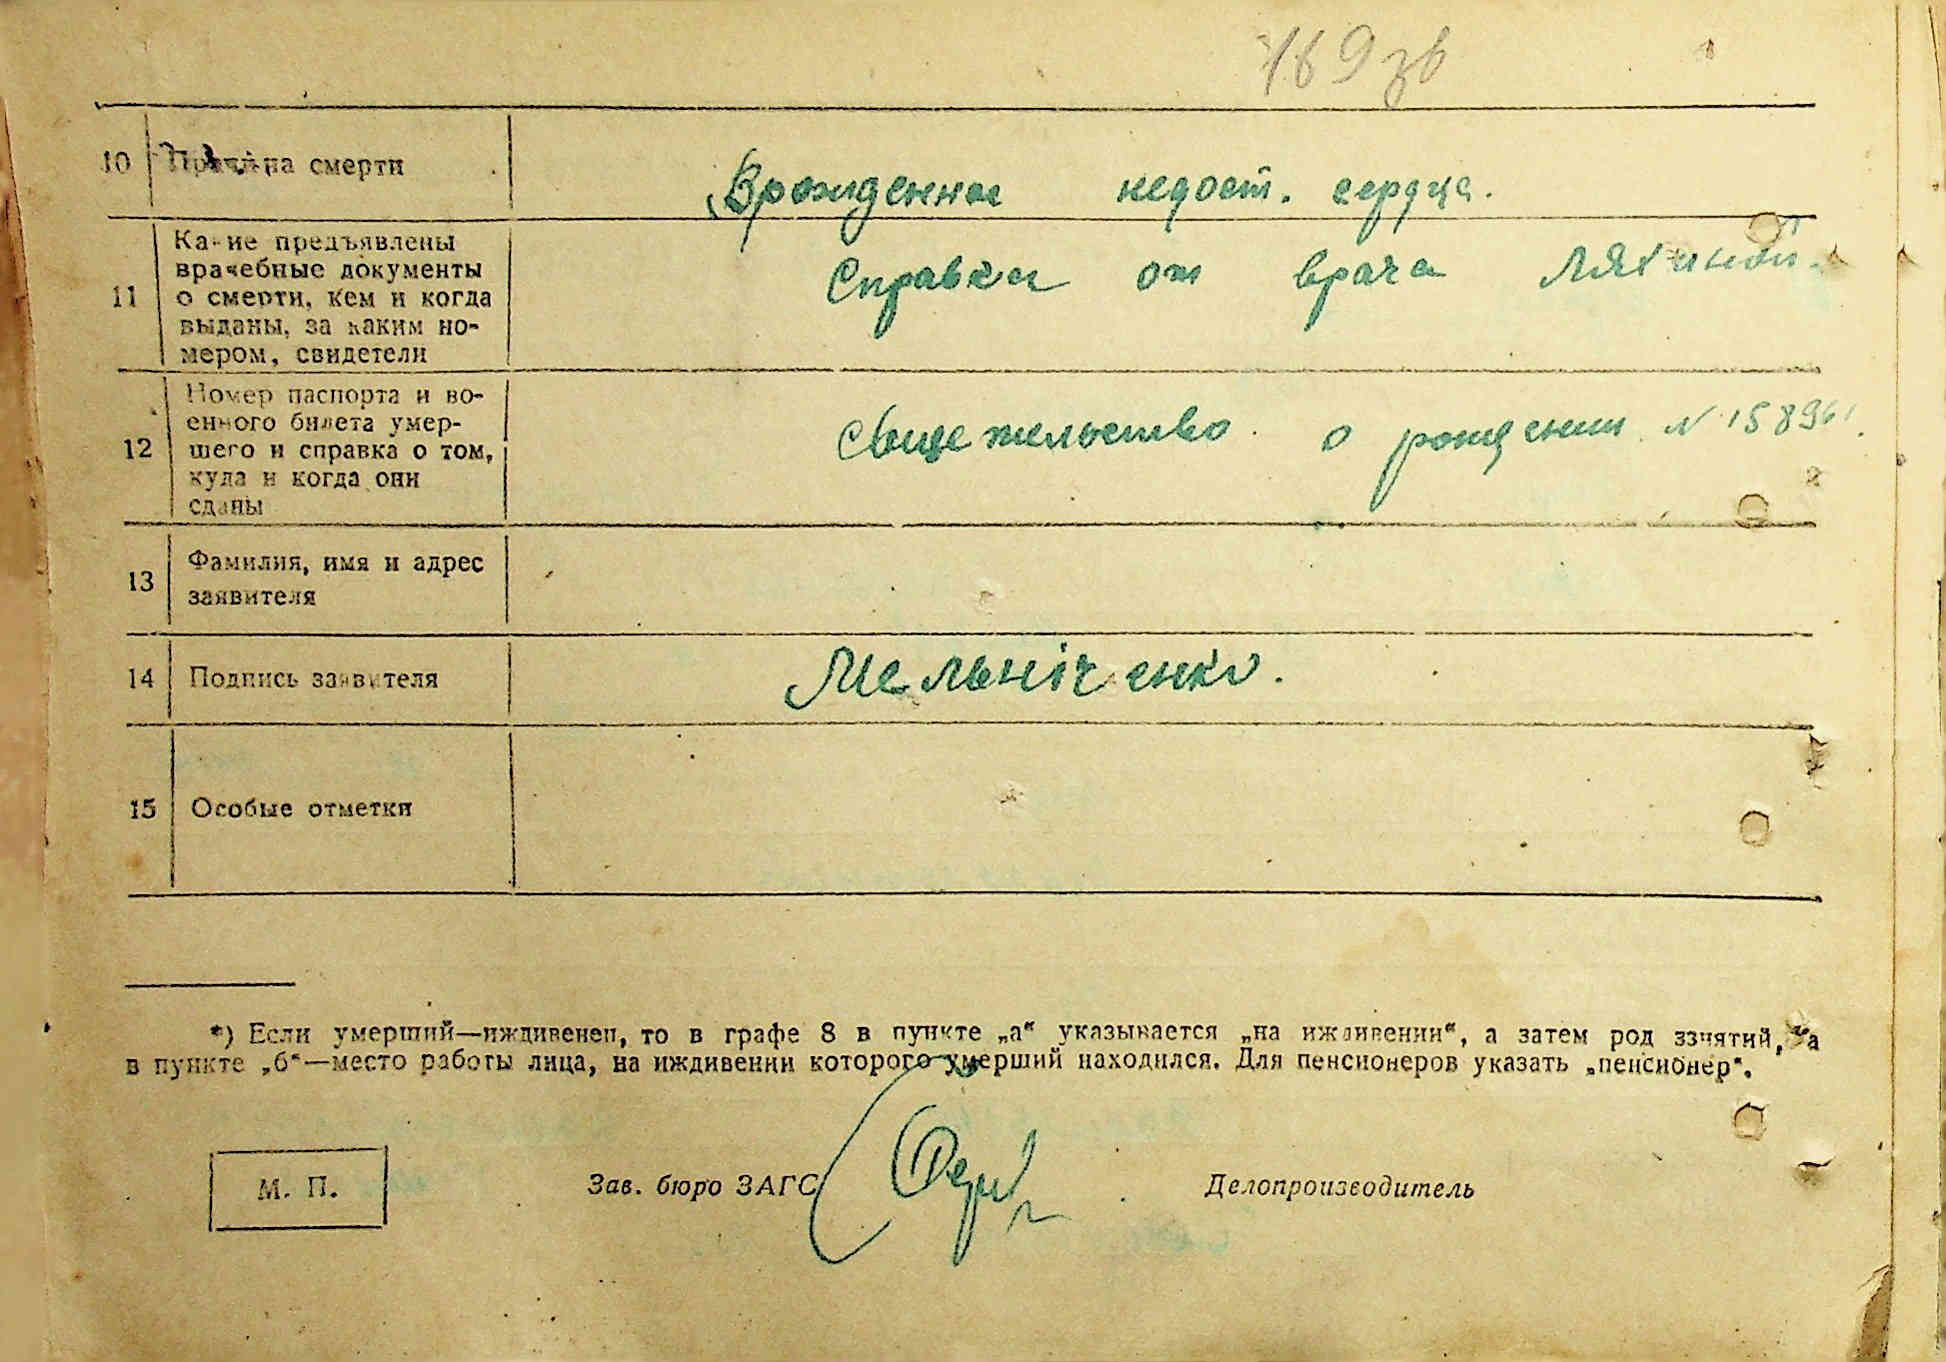 169 зв
10 Причина смерти Врожденная недост. сердца.
11 Какие предъявлены
врачебные документы
о смерти, кем и когда
выданы, за каким но-
мером, свидетели
Справка от врача Ляхиной.
12 Номер паспорта и во-
енного билета умер-
шего и справка о том,
куда и когда они
сданы
Свидетельство о рождении N
13 Фамилия, имя и адрес
заявителя
14 Подпись заявителя Мельніченко.
15 Особые отметки
*) Если умерший—иждивенец, то в графе 8 в пункте „а“ указывается „на иждивении“, а затем род занятий, а
в пункте „б“—место работы лица, на иждивении которого умерший находился. Для пенсионеров указать „пенсионер“.
М. П. Зав. бюро ЗАГС Делопроизводитель